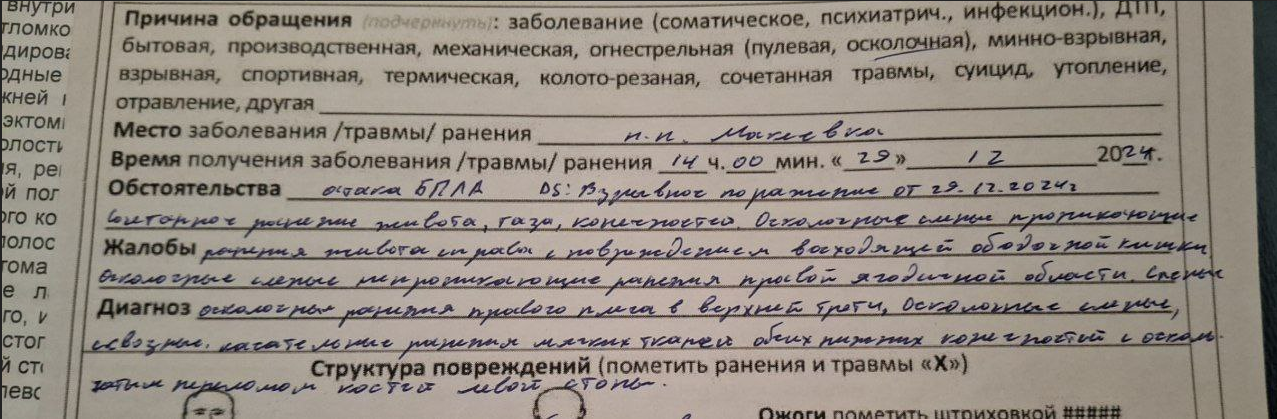 внутри
Причина обращения (подчеркнуть): заболевание (соматическое, психиатрич., инфекцион.), ДТП,
бытовая, производственная, механическая, огнестрельная (пулевая, осколочная), минно-взрывная,
взрывная, спортивная, термическая, колото-резаная, сочетанная травмы, суицид, утопление,
отравление, другая
Место заболевания /травмы/ ранения н.п. Макеевка
Время получения заболевания /травмы/ ранения 14 ч. 00 мин. «29» 12 2024г.
Обстоятельства атака БПЛА DS: Взрывное поражение от 29.12.2024г
Сочетанное ранение живота, таза, конечностей. Осколочные слепые проникающие
Жалобы ранения живота справа с повреждением восходящей ободочной кишки
осколочные слепые непроникающие ранения правой ягодичной области. Слепые
Диагноз осколочные ранения правого плеча в верхней трети, Осколочные слепые,
сквозные, касательные ранения мягких тканей обеих нижних конечностей с осколь-
Структура повреждений (пометить ранения и травмы «Х»)
чатым переломом костей левой стопы.
Ожоги пометить штриховкой #####